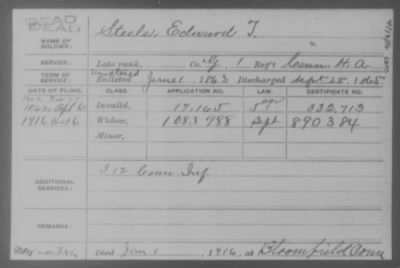 DEAD
DEAD
NAME OF SOLDIER: Steele, Edward T.
SERVICE: Late rank, Co. G, 1 Reg't Conn H. A.
TERM OF SERVICE: Enlisted June 1, 1863 Discharged Sept 25, 1865
DATE OF FILING. CLASS. APPLICATION NO. LAW. CERTIFICATE NO.
Invalid, 17.165 332,713
1916 Widow, 1083988 Sept 890384
Minor,
ADDITIONAL SERVICES: I 12 Conn Inf
REMARKS:
Died 1, 1916, at Bloomfield Conn